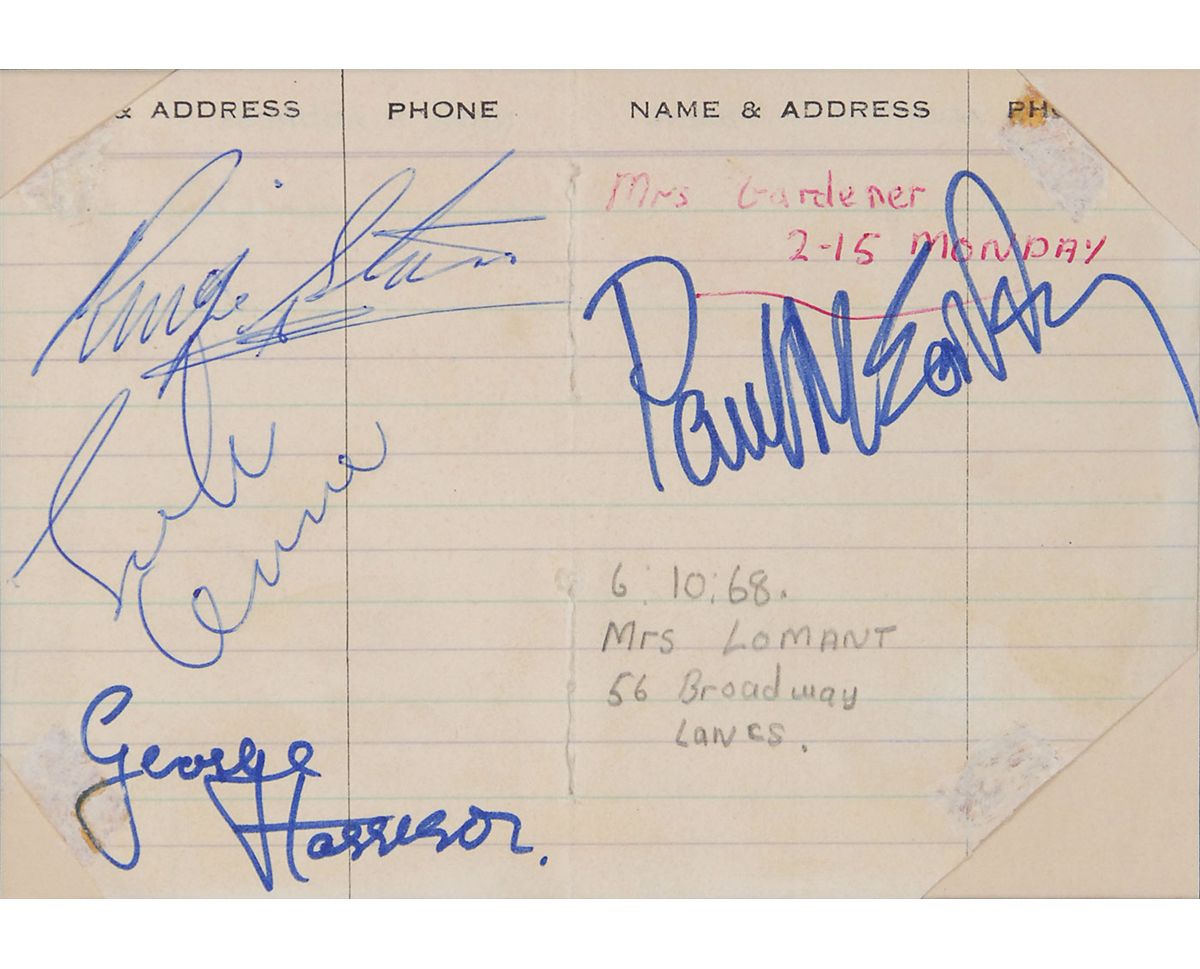 & ADDRESS PHONE
Ringo Starr
George
Harrison.
NAME & ADDRESS
Mrs Gardener
2-15 MONDAY
Paul McCartney
6. 10.68.
Mrs LOMANT
56 Broadway
Lancs.